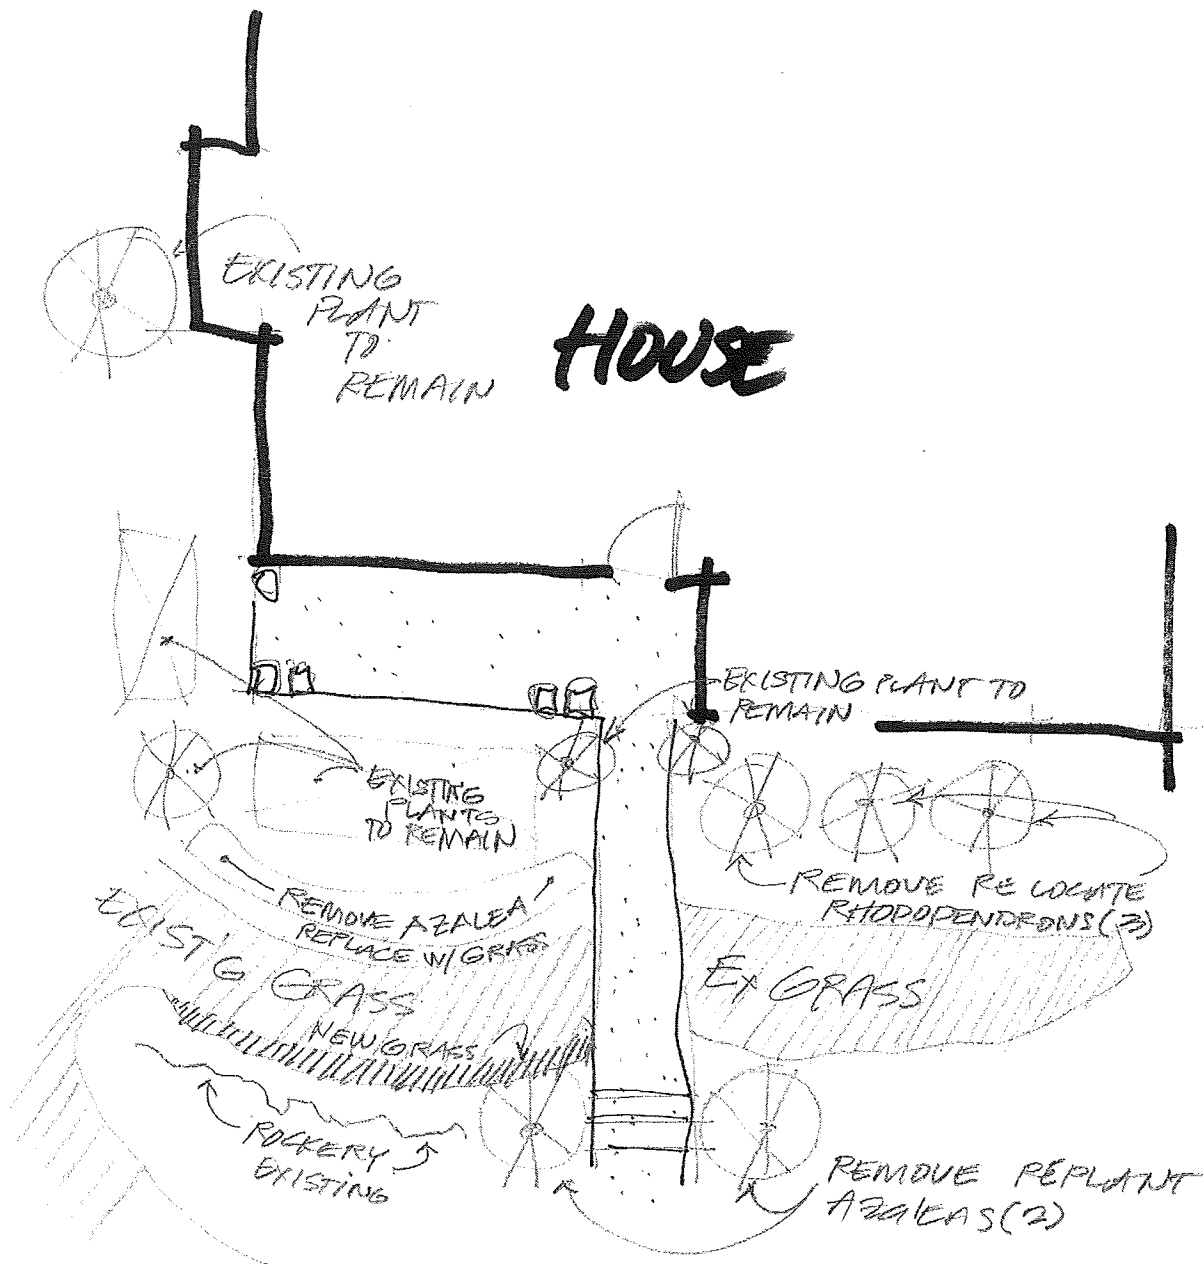 EXISTING
PLANT
TO
REMAIN
HOUSE
EXISTING PLANT TO
REMAIN
EXISTING
PLANTS
TO REMAIN
REMOVE RELOCATE
RHODODENDRONS (3)
REMOVE AZALEA
REPLACE W/ GRASS
EXIST'G GRASS
EX GRASS
NEW GRASS
ROCKERY
EXISTING
REMOVE REPLANT
AZALEAS (2)